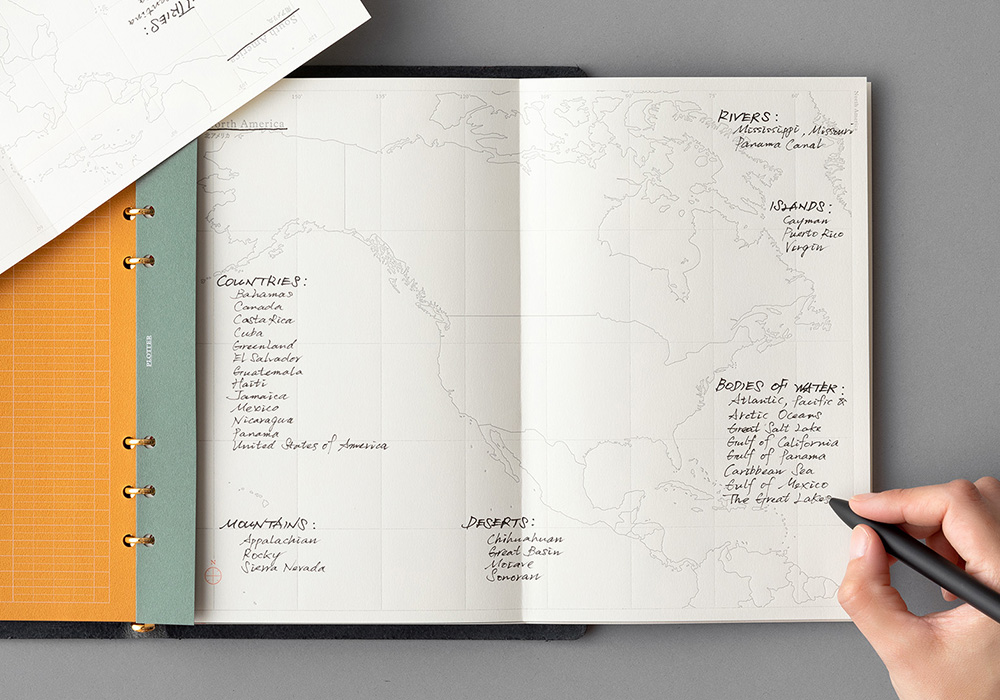 TRIES:
South America
North America
COUNTRIES:
Bahamas
Canada
Costa Rica
Cuba
Greenland
El Salvador
Guatemala
Haiti
Jamaica
Mexico
Nicaragua
Panama
United States of America
MOUNTAINS:
Appalachian
Rocky
Sierra Nevada
N
DESERTS:
Chihuahuan
Great Basin
Mojave
Sonoran
RIVERS:
Mississippi, Missouri
Panama Canal
ISLANDS:
Cayman
Puerto Rico
Virgin
BODIES OF WATER:
Atlantic, Pacific &
Arctic Oceans
Great Salt Lake
Gulf of California
Gulf of Panama
Caribbean Sea
Gulf of Mexico
The Great Lakes
North America
PLOTTER